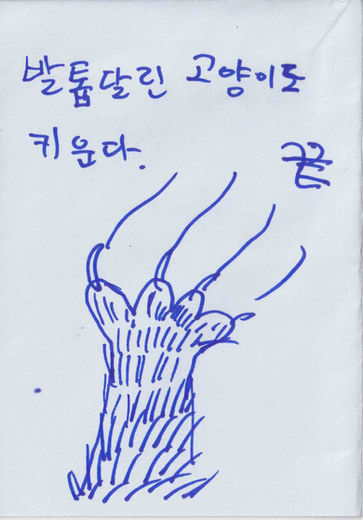 발톱달린 고양이도
키운다.
끝